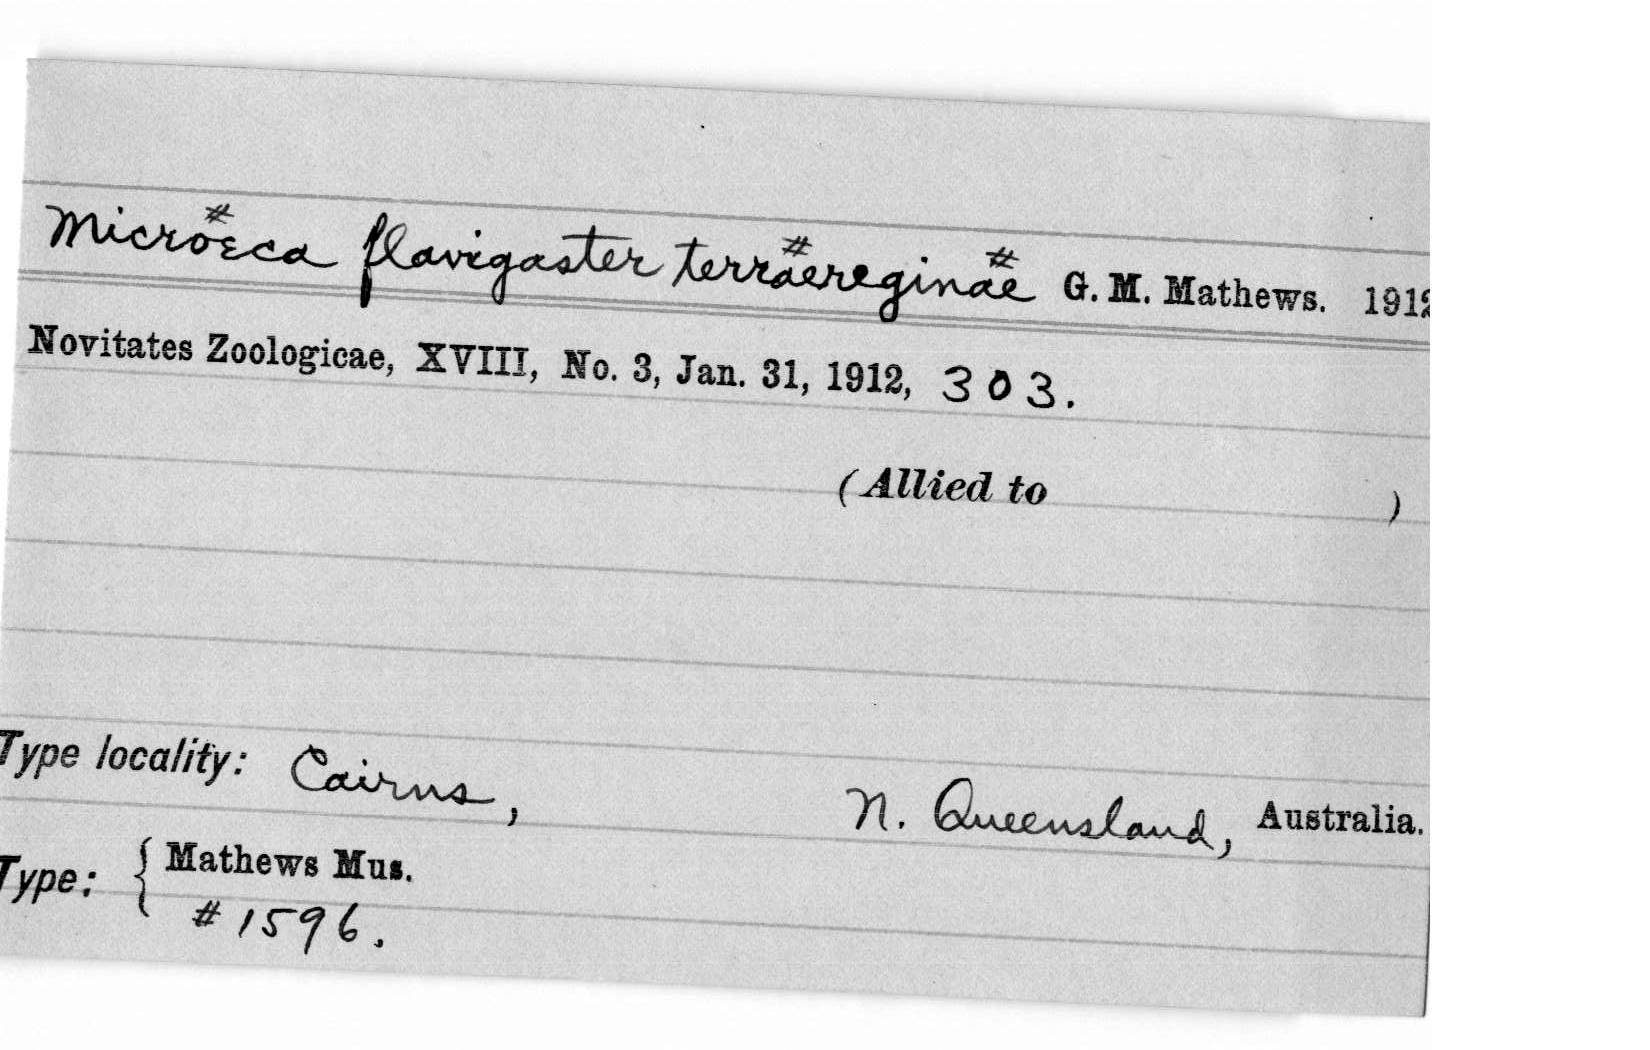 Microeca flavigaster terraereginae G. M. Mathews. 1912
Novitates Zoologicae, XVIII, No. 3, Jan. 31, 1912, 303.
(Allied to )
Type locality: Cairns, N. Queensland, Australia.
Type: { Mathews Mus.
#1596.